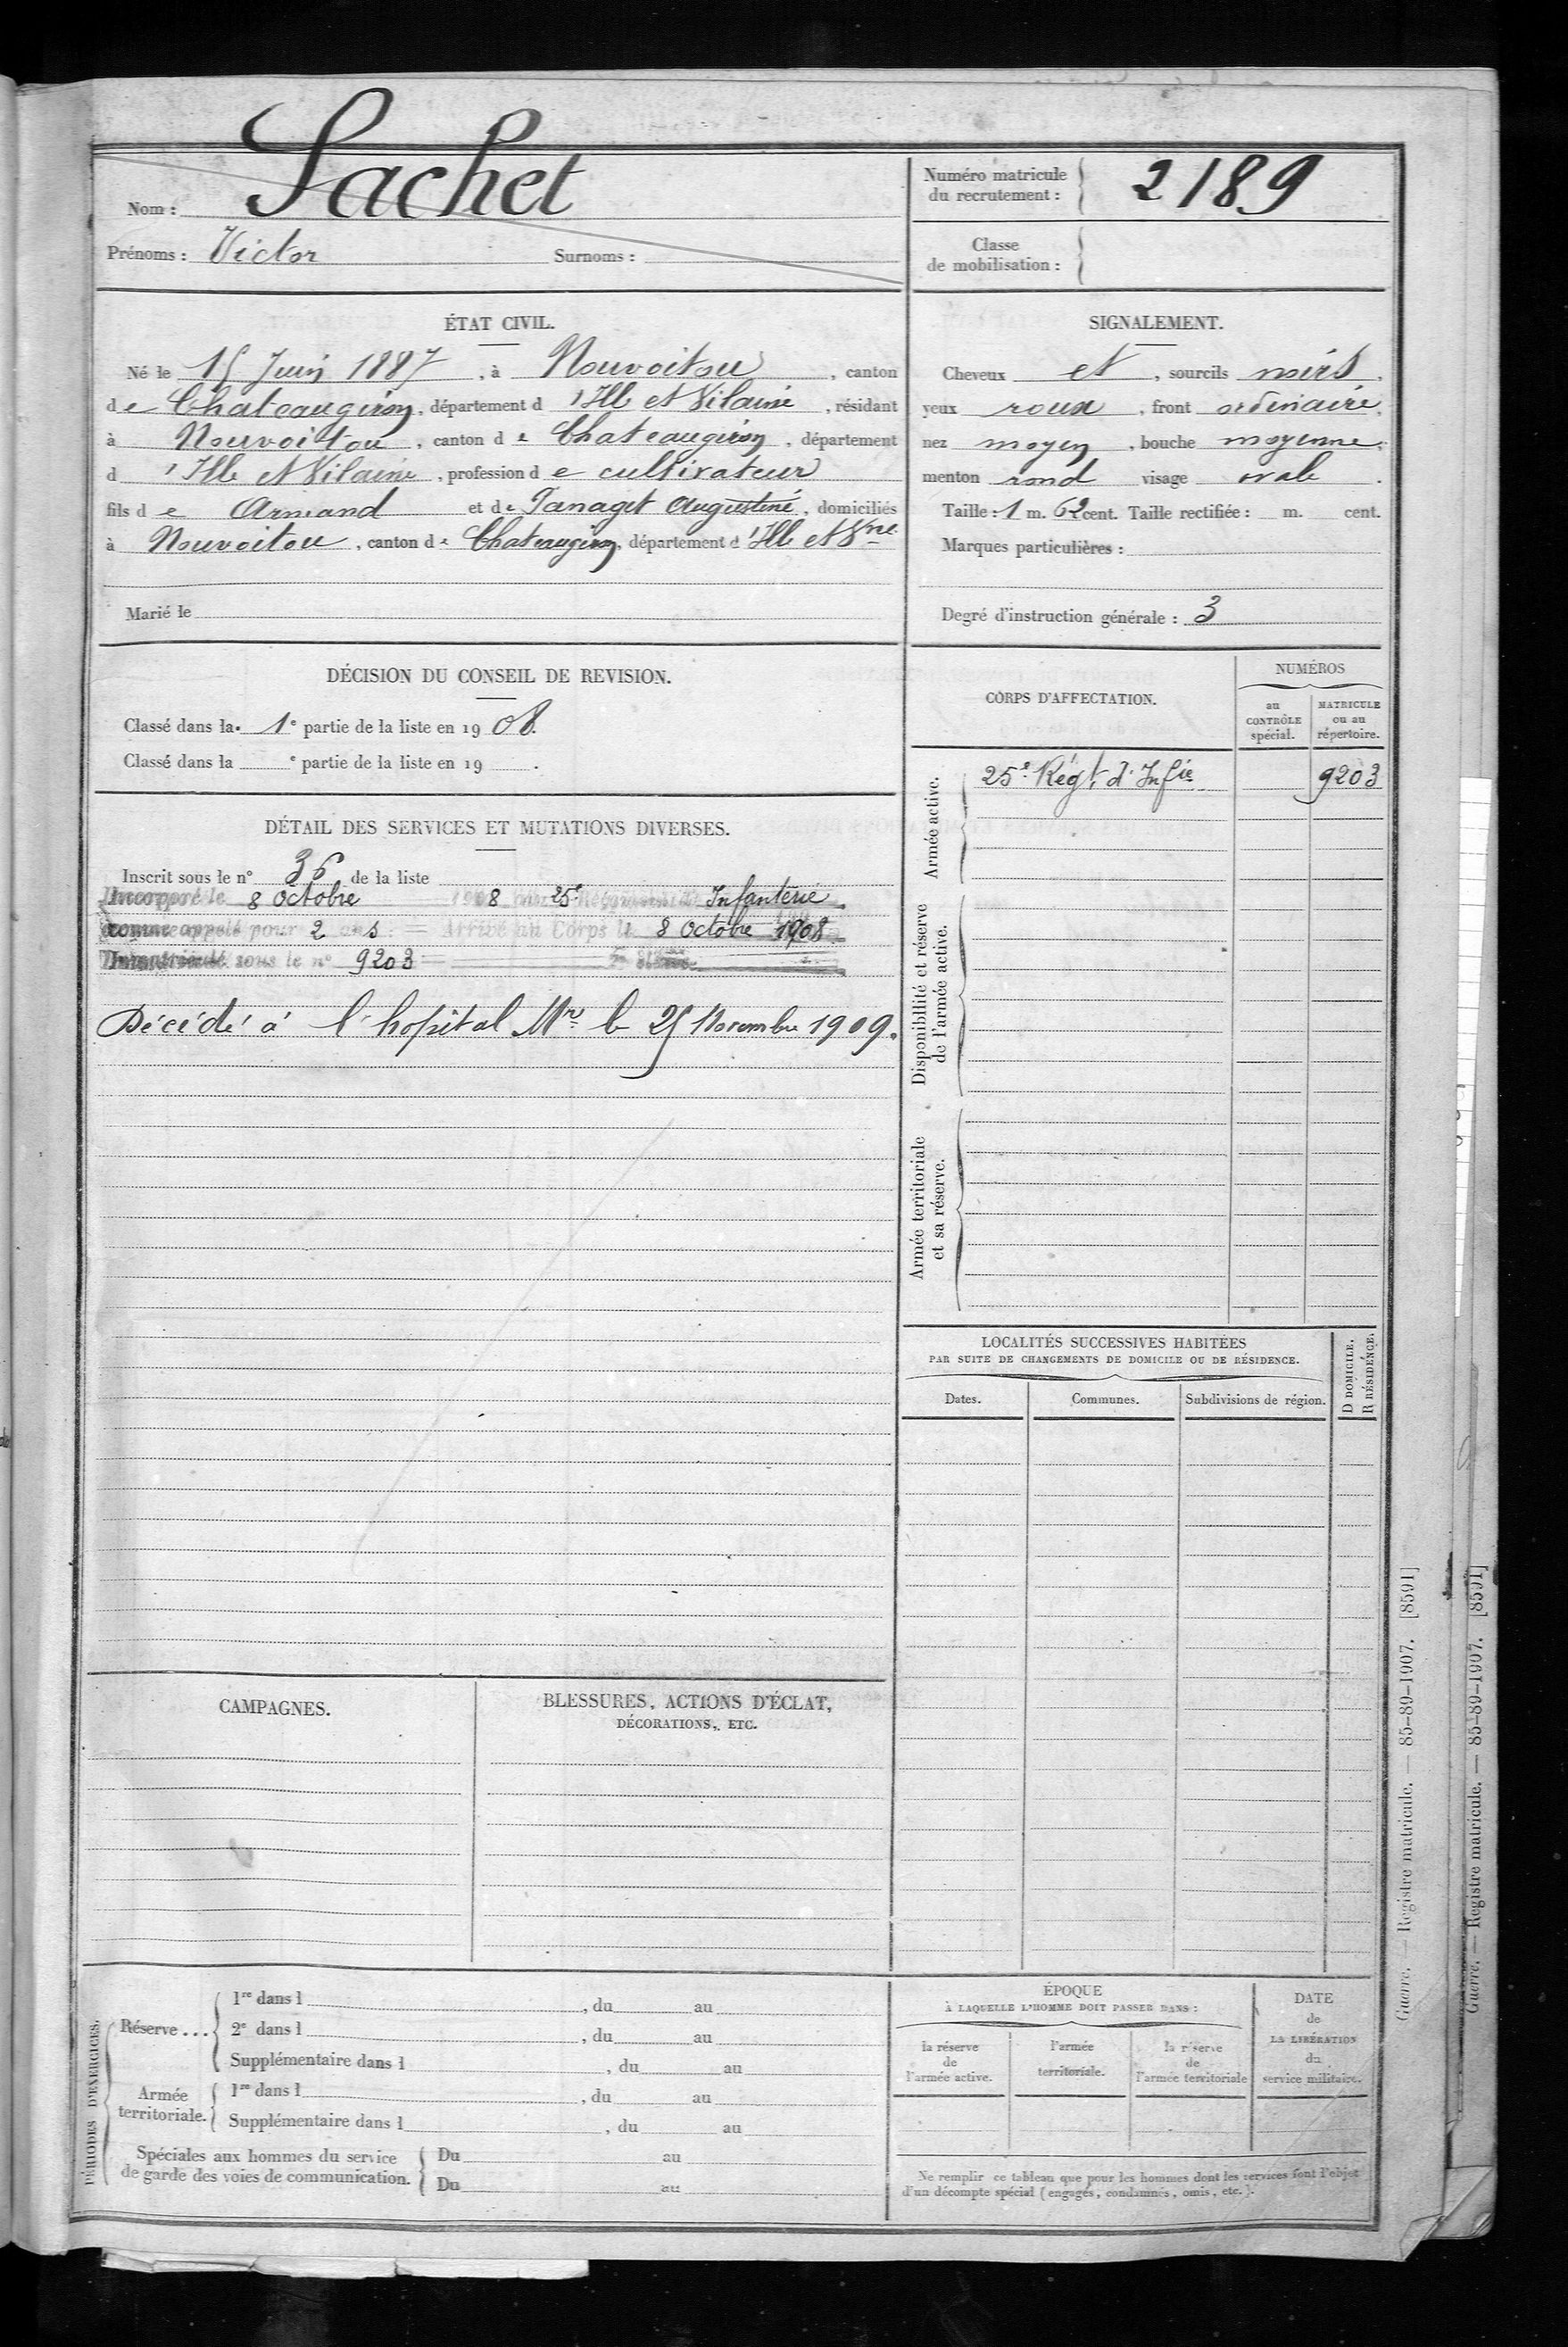 Nom : Sachet
Prénoms : Victor Surnoms :
Numéro matricule
du recrutement : 2189
Classe
de mobilisation :
ÉTAT CIVIL.
Né le 15 Juin 1887, à Nouvoitou, canton
de Chateaugiron, département d'Ille et Vilaine, résidant
à Nouvoitou, canton de Chateaugiron, département
d'Ille et Vilaine, profession de cultivateur
fils de Armand et de Panaget Augustine, domiciliés
à Nouvoitou, canton de Chateaugiron, département d'Ille et Vne
Marié le
SIGNALEMENT.
Cheveux et, sourcils noirs,
yeux roux, front ordinaire,
nez moyen, bouche moyenne,
menton rond visage ovale.
Taille : 1 m. 62 cent. Taille rectifiée : m. cent.
Marques particulières :
Degré d'instruction générale : 3
DÉCISION DU CONSEIL DE REVISION.
Classé dans la 1e partie de la liste en 1908.
Classé dans la e partie de la liste en 19 .
DÉTAIL DES SERVICES ET MUTATIONS DIVERSES.
Inscrit sous le n° 36 de la liste
Incorporé le 8 Octobre 1908 au 25e Régiment d'Infanterie
comme appelé pour 2 ans = Arrivé au Corps le 8 Octobre 1908
Immatriculé sous le n° 9203
Décédé à l'hopital Mre le 25 Novembre 1909.
CORPS D'AFFECTATION.
NUMÉROS
au
CONTRÔLE
spécial.
MATRICULE
ou au
répertoire.
Armée active.
25e Régt. d'Infie 9203
Disponibilité et réserve
de l'armée active.
Armée territoriale
et sa réserve.
LOCALITÉS SUCCESSIVES HABITÉES
PAR SUITE DE CHANGEMENTS DE DOMICILE OU DE RÉSIDENCE.
D DOMICILE.
R RÉSIDENCE.
Dates. Communes. Subdivisions de région.
CAMPAGNES.
BLESSURES, ACTIONS D'ÉCLAT,
DÉCORATIONS, ETC.
PÉRIODES D'EXERCICES.
Réserve ...
1re dans l , du au
2e dans l , du au
Supplémentaire dans l , du au
Armée
territoriale.
1re dans l , du au
Supplémentaire dans l , du au
Spéciales aux hommes du service
de garde des voies de communication.
Du au
Du au
ÉPOQUE
À LAQUELLE L'HOMME DOIT PASSER DANS :
la réserve
de
l'armée active.
l'armée
territoriale.
la réserve
de
l'armée territoriale
DATE
de
LA LIBÉRATION
du
service militaire.
Ne remplir ce tableau que pour les hommes dont les services font l'objet
d'un décompte spécial (engagés, condamnés, omis, etc.).
Guerre. — Registre matricule. — 85-89-1907. [8591]
Guerre. — Registre matricule. — 85-89-1907. [8591]